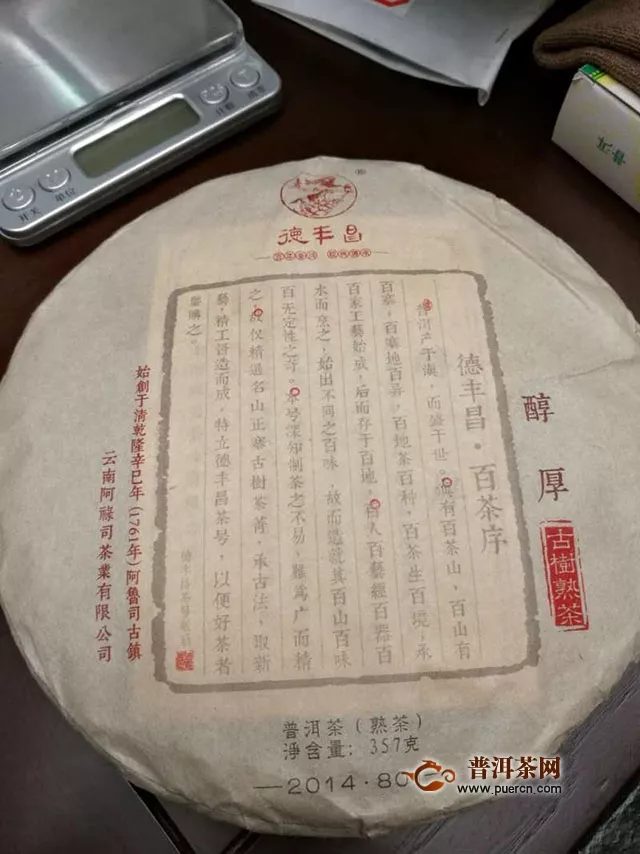 开关
单位
德丰昌
®
德丰昌·百茶序
普洱产于滇,而盛于世。滇有百茶山,百山有
百寨,百寨地百异,百地茶百种,百茶生百境,承
百家工藝始成,后而存于百地,百人百藝經百器百
水而烹之,始出不同之百味,故而造就其百山百味
百无定性之奇。本号深知制茶之不易,難為广而精
之,故仅精選名山正寨古樹茶菁,承古法,取新
藝,精工督造而成,特立德丰昌茶号,以便好茶者
鑒購之。
醇厚
古樹熟茶
始創于清乾隆辛巳年(1761年)阿魯司古镇
云南阿祿司茶業有限公司
普洱茶(熟茶)
淨含量:357克
—2014·80
普洱茶网
www.puercn.com